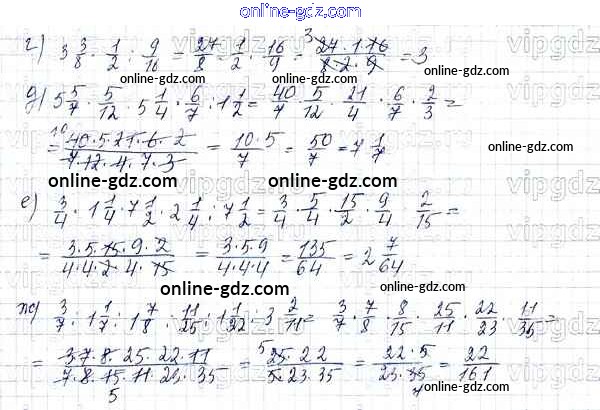 online-gdz.com
г) 3 3/8 · 1/2 : 9/16 = 27/8 · 1/2 · 16/9 = 27·1·16/8·2·9 = 3
online-gdz.com online-gdz.com
д) 5 5/7 · 5/12 · 5 1/4 · 6/7 : 1 1/2 = 40/7 · 5/12 · 21/4 · 6/7 · 2/3 =
= 40·5·21·6·2/7·12·4·7·3 = 10·5/7 = 50/7 = 7 1/7
online-gdz.com online-gdz.com
е) 3/4 · 1 1/4 : 7 1/2 · 2 1/4 : 7 1/2 = 3/4 · 5/4 · 15/2 · 9/4 · 2/15 =
= 3·5·15·9·2/4·4·2·4·15 = 3·5·9/4·4·4 = 135/64 = 2 7/64
online-gdz.com online-gdz.com
ж) 3/7 : 1 1/7 : 1 7/8 : 11/25 : 1 1/22 · 3 2/11 = 3/7 · 7/8 · 8/15 · 25/11 · 22/23 · 11/35 =
= 3·7·8·25·22·11/7·8·15·11·23·35 = 25·22/5·23·35 = 22·5/23·35 = 22/161
online-gdz.com online-gdz.com